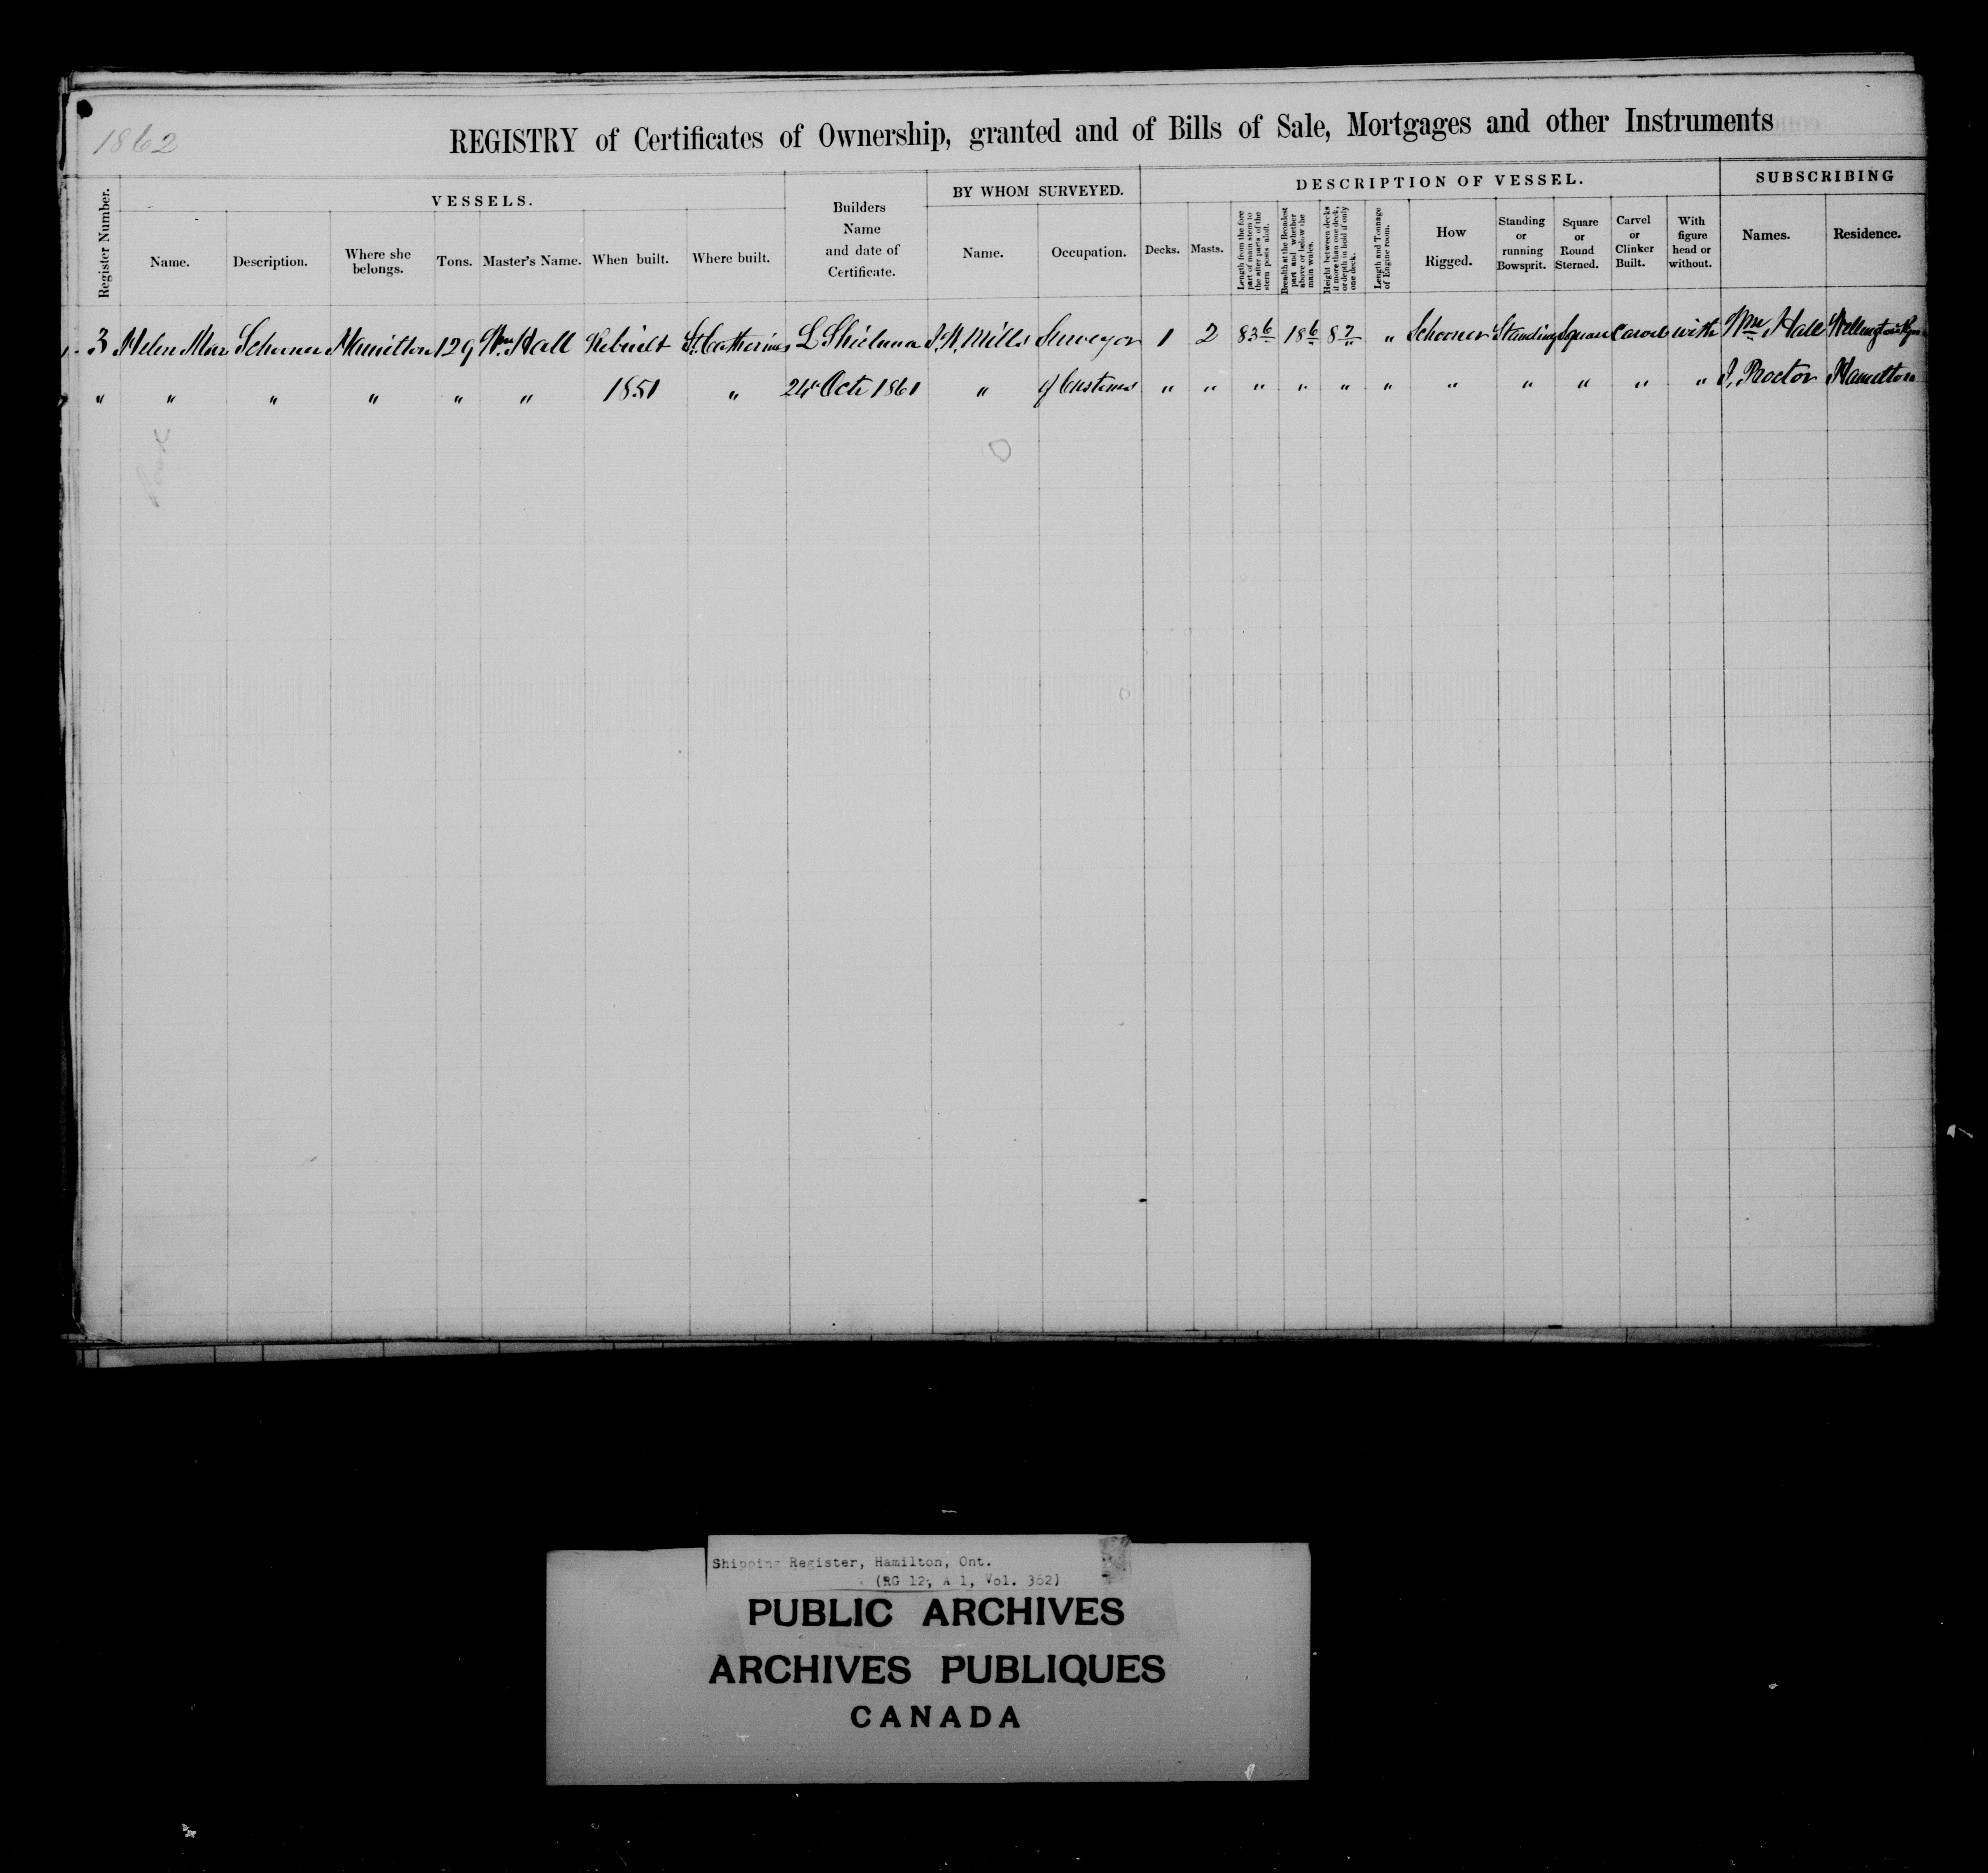 1862
REGISTRY of Certificates of Ownership, granted and of Bills of Sale, Mortgages and other Instruments
Register Number.
VESSELS.
Name.
Description.
Where she belongs.
Tons.
Master's Name.
When built.
Where built.
Builders Name and date of Certificate.
BY WHOM SURVEYED.
Name.
Occupation.
DESCRIPTION OF VESSEL.
Decks.
Masts.
Length from the fore part of main stem to the after parts of the stern posts aloft.
Breadth at the Broadest part and whether above or below the main wales.
Height between decks if more than one deck, or depth in hold if only one deck.
Length and Tonnage of Engine room.
How Rigged.
Standing or running Bowsprit.
Square or Round Sterned.
Carvel or Clinker Built.
With figure head or without.
SUBSCRIBING
Names.
Residence.
3 Helen Mar Schooner Hamilton 129 Wm Hall Rebuilt St. Catherines L Shieluna J.H. Mills Surveyor 1 2 83 6 18 6 8 7 " Schooner Standing Square Carvel with Wm Hall Wellington
" " " " " " 1851 " 24 Oct 1861 " of Customs " " " " " " " " " " " J. Proctor Hamilton
Shipping Register, Hamilton, Ont.
(RG 12, A 1, Vol. 362)
PUBLIC ARCHIVES
ARCHIVES PUBLIQUES
CANADA